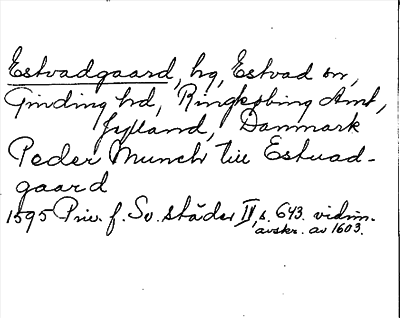 Estvadgaard, hg, Estvad sn,
Ginding hd, Ringkøbing Amt,
Jylland, Danmark
Peder Munch till Estvad-
gaard
1595 Priv. f. Sv. städer II, s. 643. vidim.
avskr. av 1603.